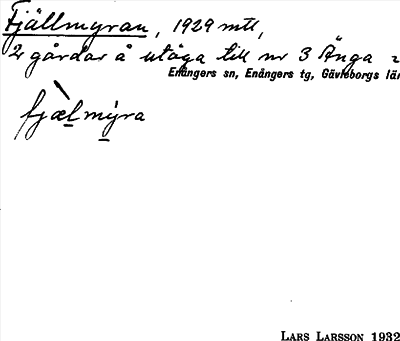 Fjällmyran, 1929 mtl,
2 gårdar å utäga till nr 3 Änga 2
Enångers sn, Enångers tg, Gävleborgs län
fjælmyra
LARS LARSSON 1932